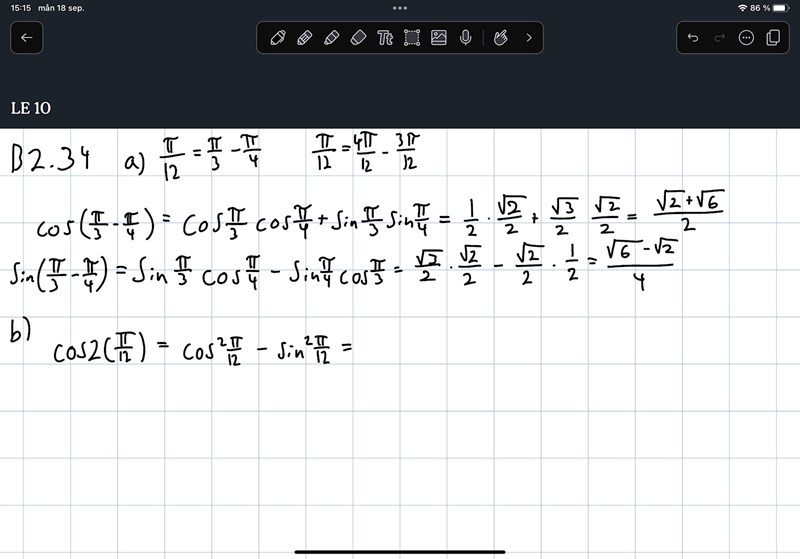 15:15 mån 18 sep. 86 %
Tt
LE 10
B2.34 a) π/12 = π/3 - π/4 π/12 = 4π/12 - 3π/12
cos(π/3 - π/4) = cos π/3 cos π/4 + sin π/3 sin π/4 = 1/2 · √2/2 + √3/2 √2/2 = (√2+√6)/2
sin(π/3 - π/4) = sin π/3 cos π/4 - sin π/4 cos π/3 = √3/2 · √2/2 - √2/2 · 1/2 = (√6-√2)/4
b)
cos2(π/12) = cos² π/12 - sin² π/12 =